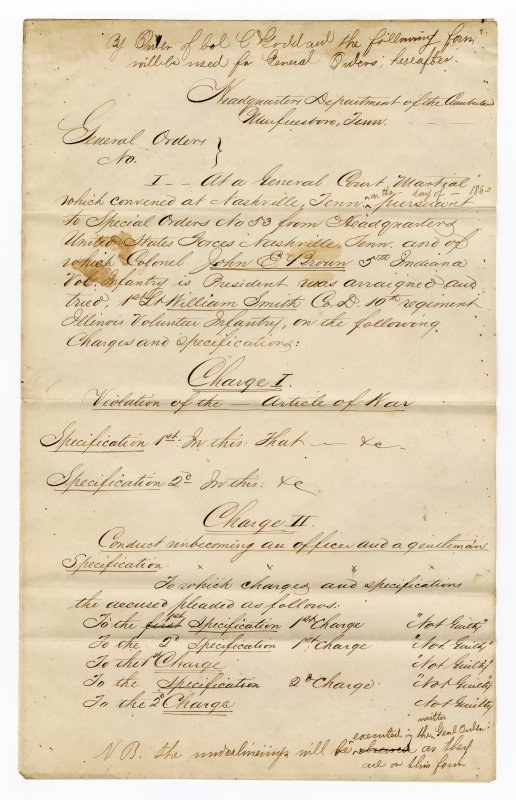 By Order of Col C Goddard the following form
will be used for General Orders, hereafter.
Headquarters Department of the Cumberland
Murfreesboro, Tenn.
General Orders }
No.
I — At a General Court Martial
which convened at Nashville, Tenn. on the — day of — 186– pursuant
to Special Orders No 53 from Headquarters
United States Forces Nashville, Tenn. and of
which Colonel John E. Brown 5th Indiana
Vol. Infantry is President was arraigned and
tried, 1st Lt William Smith Co. D. 10th regiment
Illinois Volunteer Infantry, on the following
Charges and specifications:
Charge I.
Violation of the — Article of War
Specification 1st: In this: That — &c
Specification 2d In this: &c
Charge II.
Conduct unbecoming an officer and a gentleman
Specification. x x x x
To which charges and specifications
the accused pleaded as follows.
To the first 1st Specification 1st Charge "Not Guilty"
To the 2d Specification 1st Charge "Not Guilty"
To the 1st Charge "Not Guilty"
To the Specification 2d Charge "Not Guilty"
To the 2d Charge Not Guilty
N B. the underlinings will be executed in the Genl Order as they
are on this form